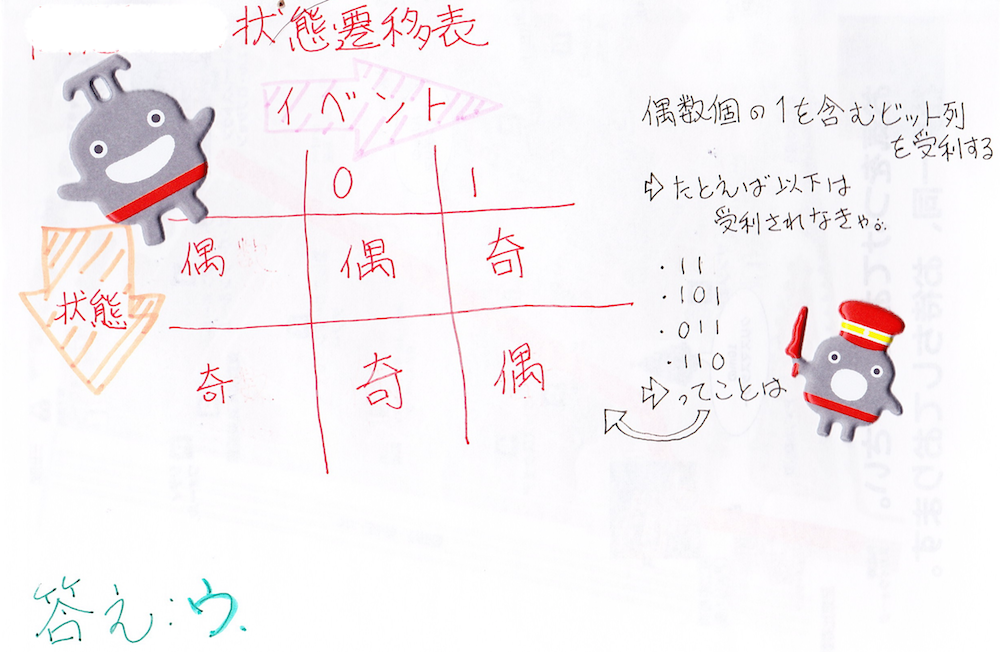 状態遷移表
イベント
0 1
偶 偶 奇
奇 奇 偶
状態
偶数個の1を含むビット列
を受利する
⇨たとえば以下は
受利されなきゃ。
・11
・101
・011
・110
⇨ってことは
答え:ウ.